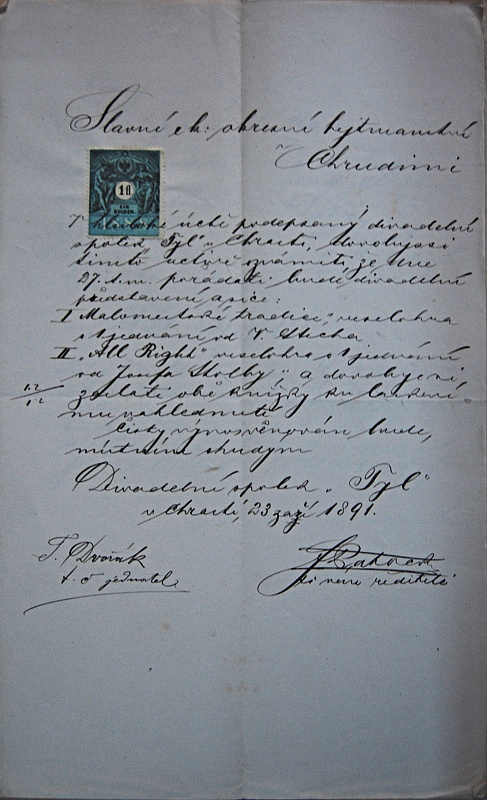 Slavné ck: okresní hejtmanství
v Chrudimi
1 fl
V hluboké úctě podepsaný divadelní
spolek "Tyl" v Chrasti, dovoluje si
tímto uctivě oznámiti, že dne
27. t. m. pořádati bude divadelní
představení a sice:
I "Maloměstské tradice", veselohra
o 1 jednání od V. Štecha
II "All Right" veselohra o 1 jednání
od Josefa Štolby" a dovoluje si
zaslati obě knížky ku laskavé
mu nahlednutí
Čistý výnos věnován bude,
místním chudým
Divadelní spolek "Tyl"
v Chrasti, 23 září 1891.
T. Dvořák
t. č. jednatel
řiditele